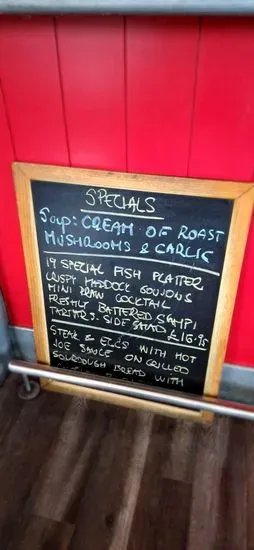 SPECIALS
Soup: CREAM OF ROAST
MUSHROOMS & GARLIC
19 SPECIAL FISH PLATTER
CRISPY HADDOCK GOUJONS
MINI PRAWN COCKTAIL
FRESHLY BATTERED SCAMPI
TARTARE. SIDE SALAD £16.95
STEAK & EGGS WITH HOT
JOE SAUCE ON GRILLED
SOURDOUGH BREAD WITH